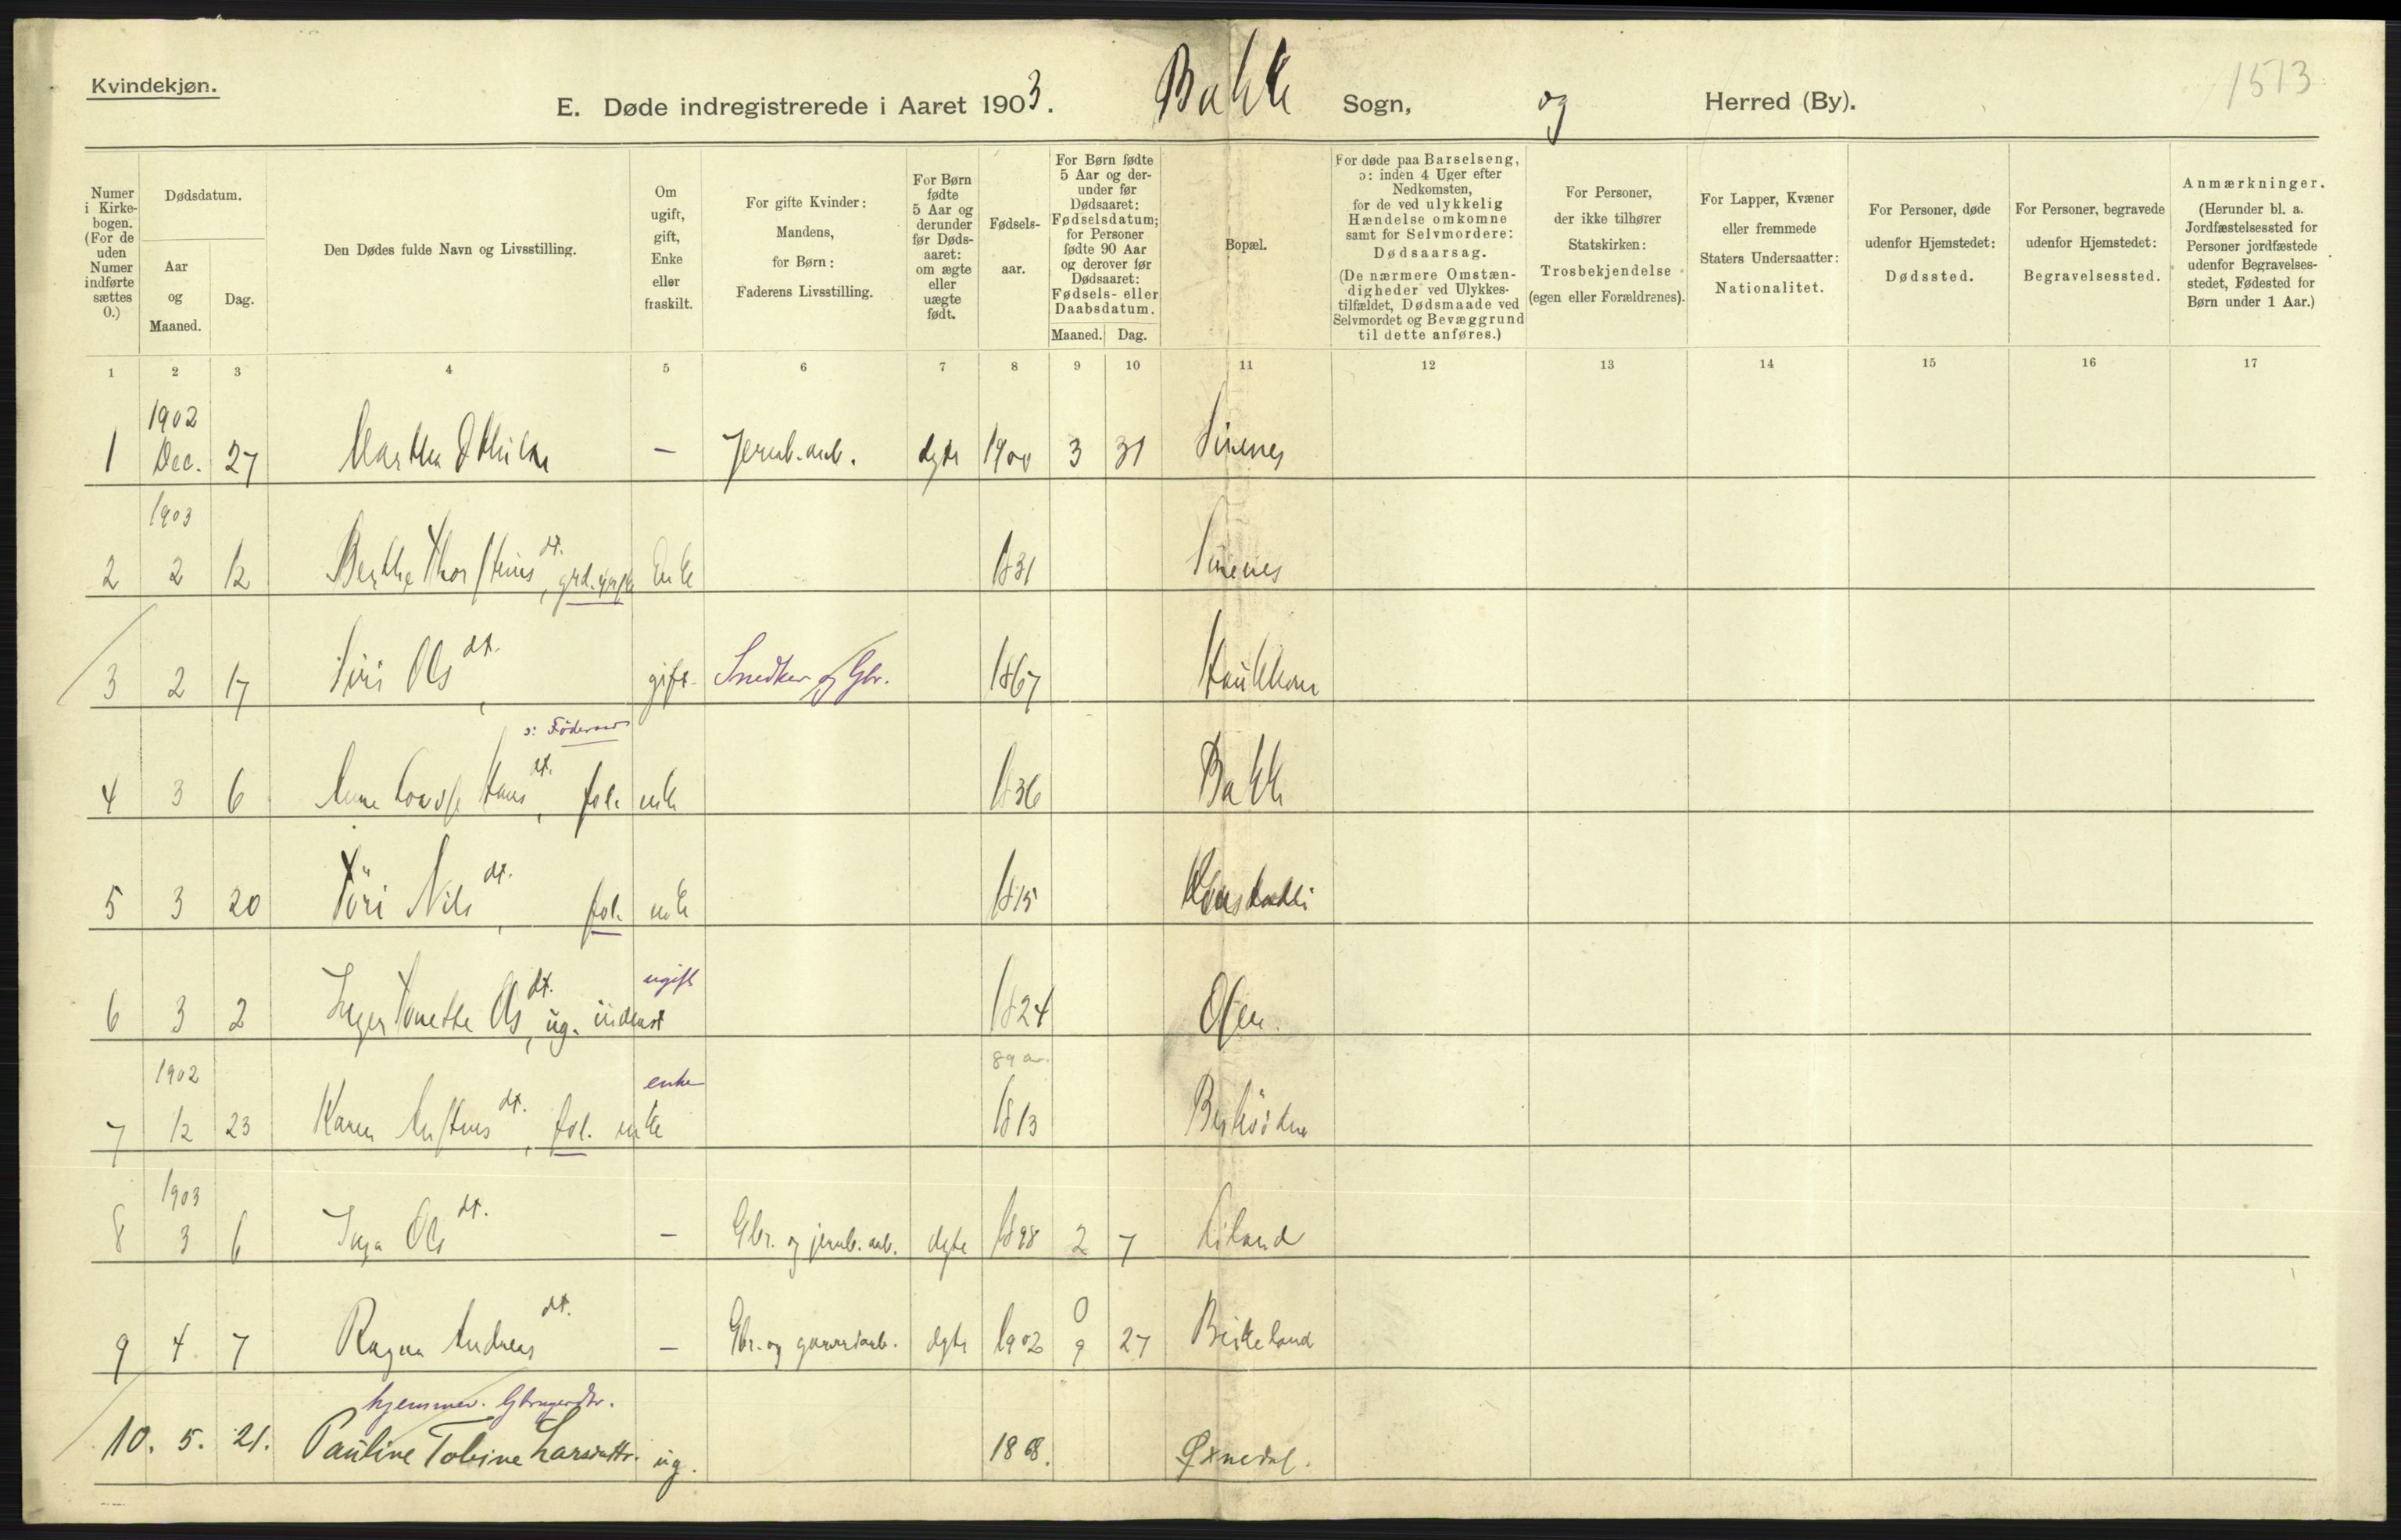 Kvindekjøn.
E. Døde indregistrerede i Aaret 1903. Bakke Sogn, og Herred (By). 1513
Numer i Kirkebogen. (For de uden Numer indførte sættes 0.)
Dødsdatum.
Aar og Maaned.
Dag.
Den Dødes fulde Navn og Livsstilling.
Om ugift, gift, Enke eller fraskilt.
For gifte Kvinder: Mandens, for Børn: Faderens Livsstilling.
For Børn fødte 5 Aar og derunder før Dødsaaret: om ægte eller uægte født.
Fødselsaar.
For Børn fødte 5 Aar og derunder før Dødsaaret: Fødselsdatum; for Personer fødte 90 Aar og derover før Dødsaaret: Fødsels- eller Daabsdatum.
Maaned. Dag.
Bopæl.
For døde paa Barselseng, ɔ: inden 4 Uger efter Nedkomsten, for de ved ulykkelig Hændelse omkomne samt for Selvmordere: Dødsaarsag. (De nærmere Omstændigheder ved Ulykkestilfældet, Dødsmaade ved Selvmordet og Bevæggrund til dette anføres.)
For Personer, der ikke tilhører Statskirken: Trosbekjendelse (egen eller Forældrenes).
For Lapper, Kvæner eller fremmede Staters Undersaatter: Nationalitet.
For Personer, døde udenfor Hjemstedet: Dødssted.
For Personer, begravede udenfor Hjemstedet: Begravelsessted.
Anmærkninger. (Herunder bl. a. Jordfæstelsessted for Personer jordfæstede udenfor Begravelsesstedet, Fødested for Børn under 1 Aar.)
1 2 3 4 5 6 7 8 9 10 11 12 13 14 15 16 17
1902
1 Dec. 27 Martha Othilie — Jernb.arb. ægte 1900 3 31 Sirenes
1903
2 2 12 Berthe Thorsteins dt., Enke 1831 Sirenes
3 2 17 Siri Ols dt., gift Snedker og Gbr. 1867 Haukkom
ɔ: Föderaad
4 3 6 Anne Hans dt., fol. enke 1836 Bakke
5 3 20 Töri Nils dt., fol. enke 1815
ugift
6 3 2 Inger Tonette Ols dt., ug. inderst 1824 Osen.
1902 enke 89 a.
7 12 23 Karen Austens dt., fol. enke 1813
1903
8 3 6 Inga Ols dt. — Gbr. og jernb.arb. ægte 1898 2 7 Liland
0
9 4 7 Ragna Andreas dt. — Gbr. og ægte 1902 9 27 Birkeland
hjemmev. Gbrugerdtr.
10. 5. 21. Pauline Tobine Larsdattr. ug. 1868. Øxnedal.